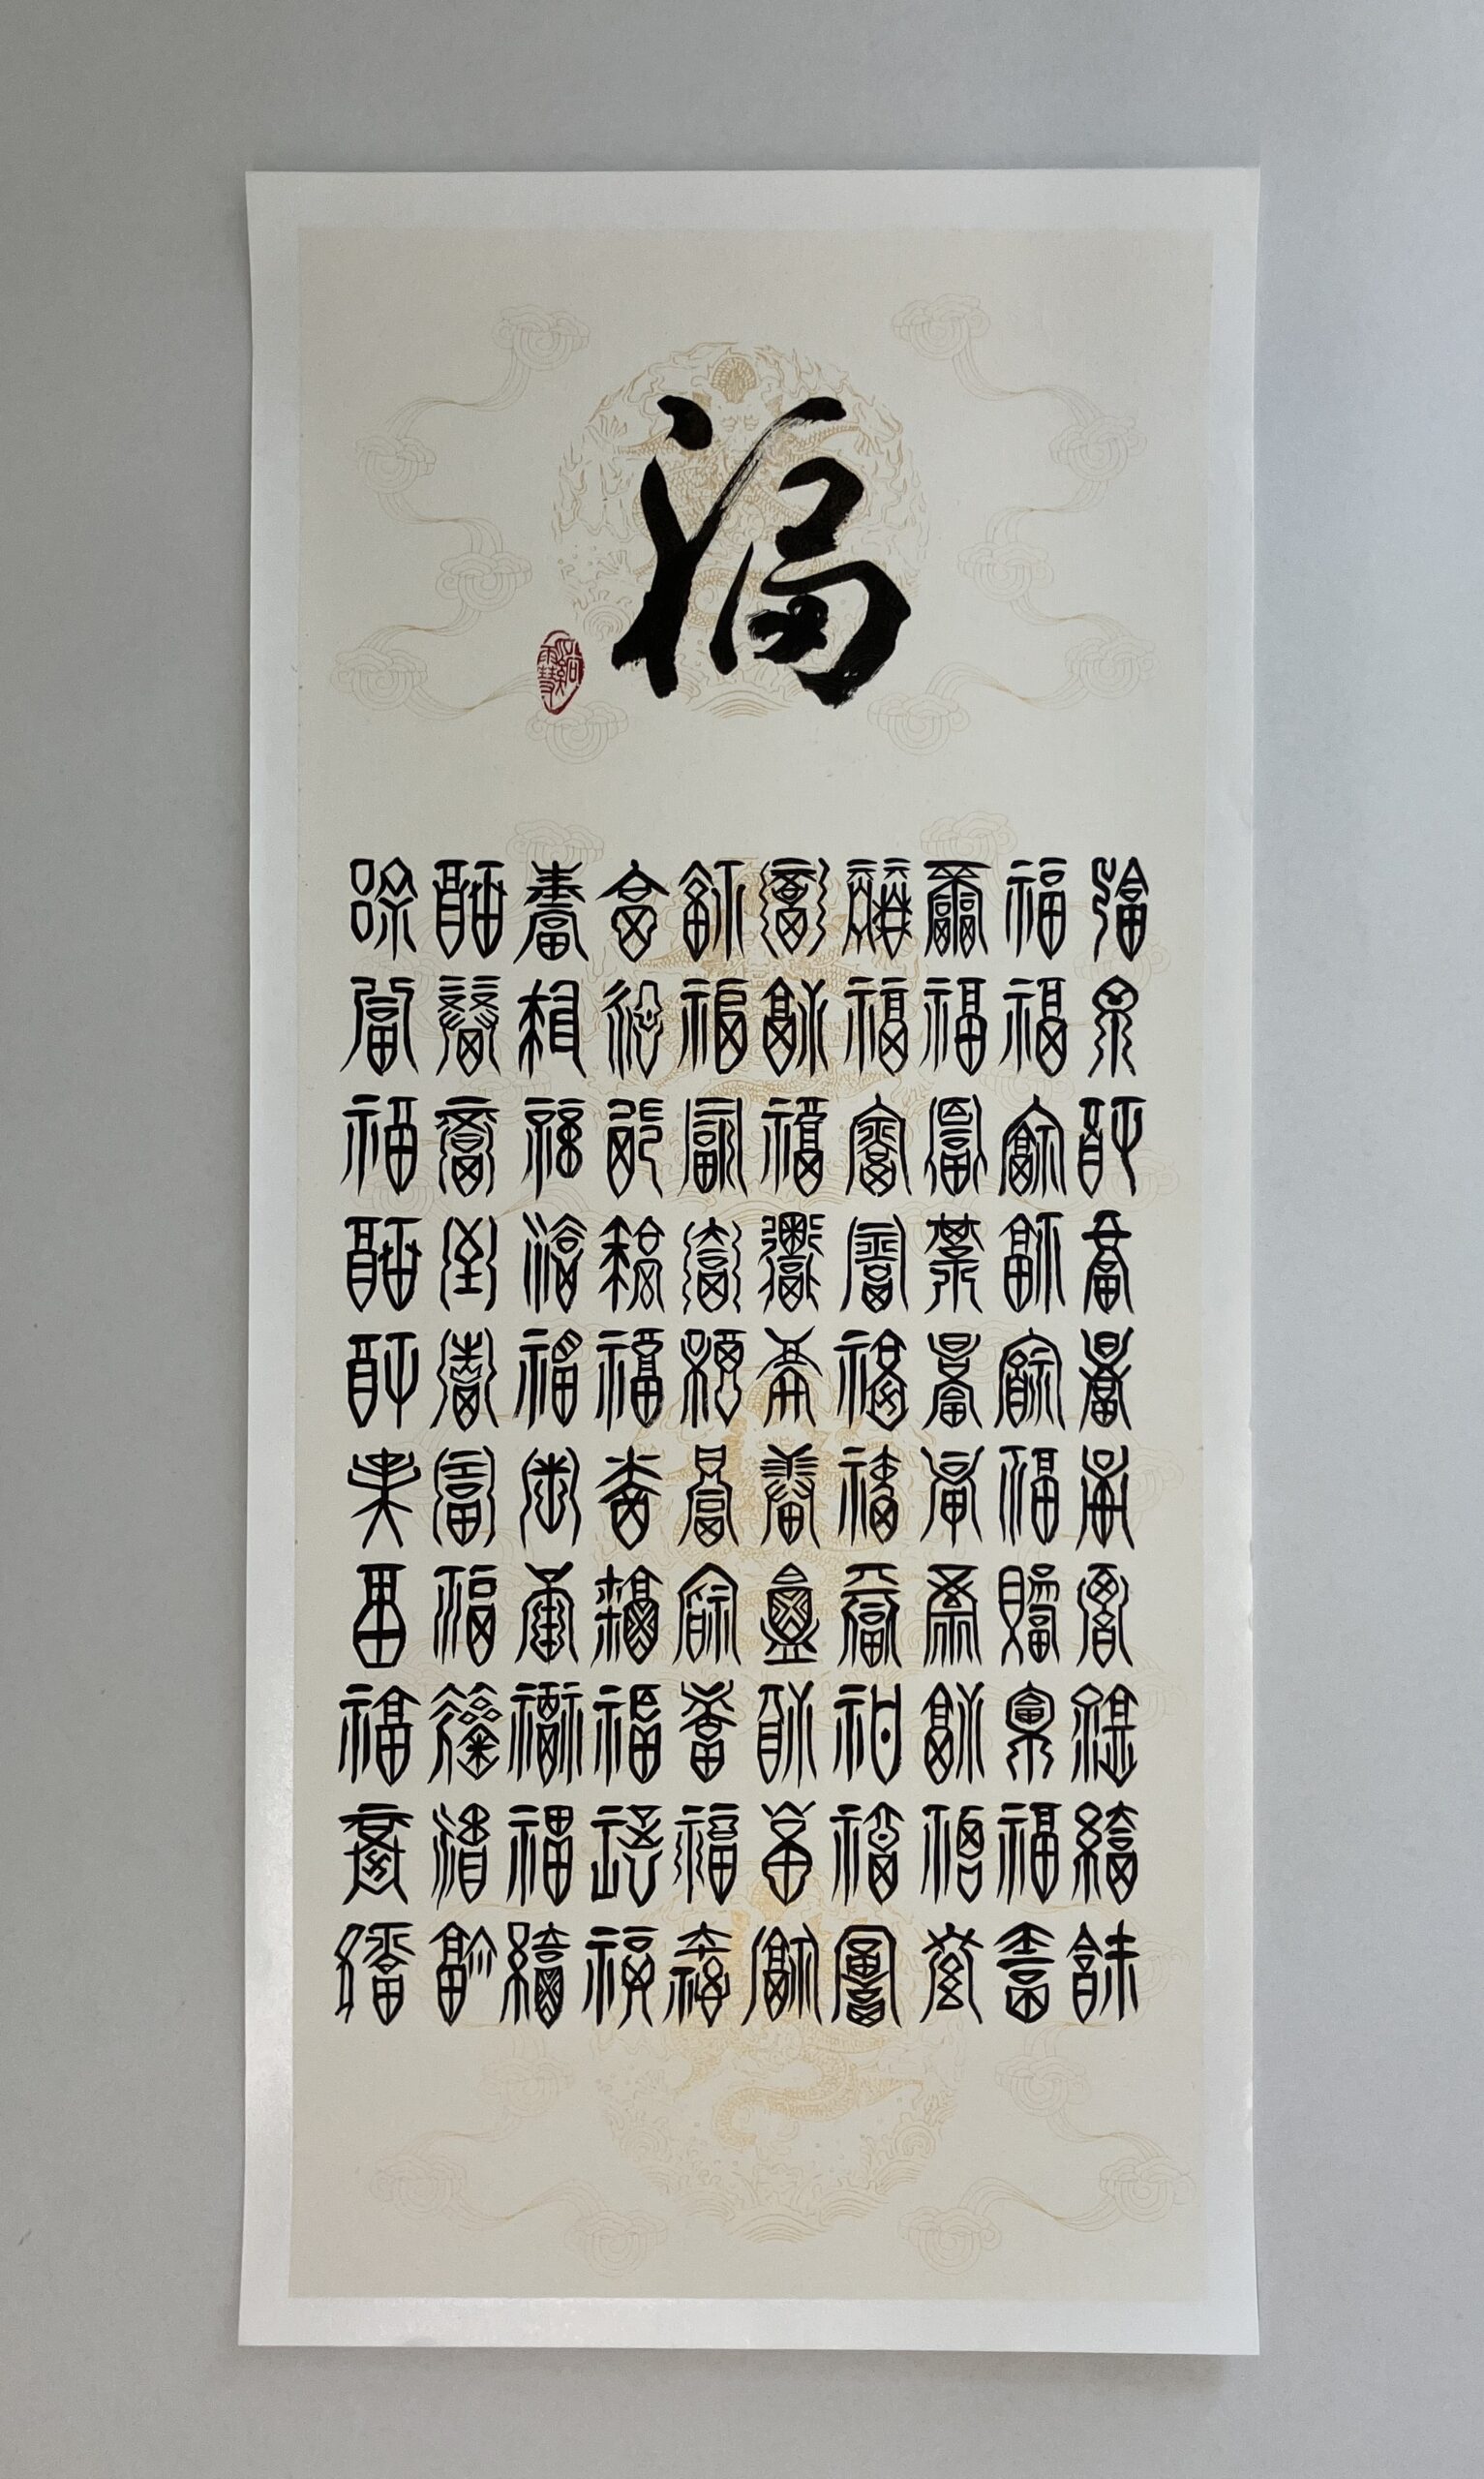 福
福福福福福福福福福福
福福福福福福福福福福
福福福福福福福福福福
福福福福福福福福福福
福福福福福福福福福福
福福福福福福福福福福
福福福福福福福福福福
福福福福福福福福福福
福福福福福福福福福福
福福福福福福福福福福